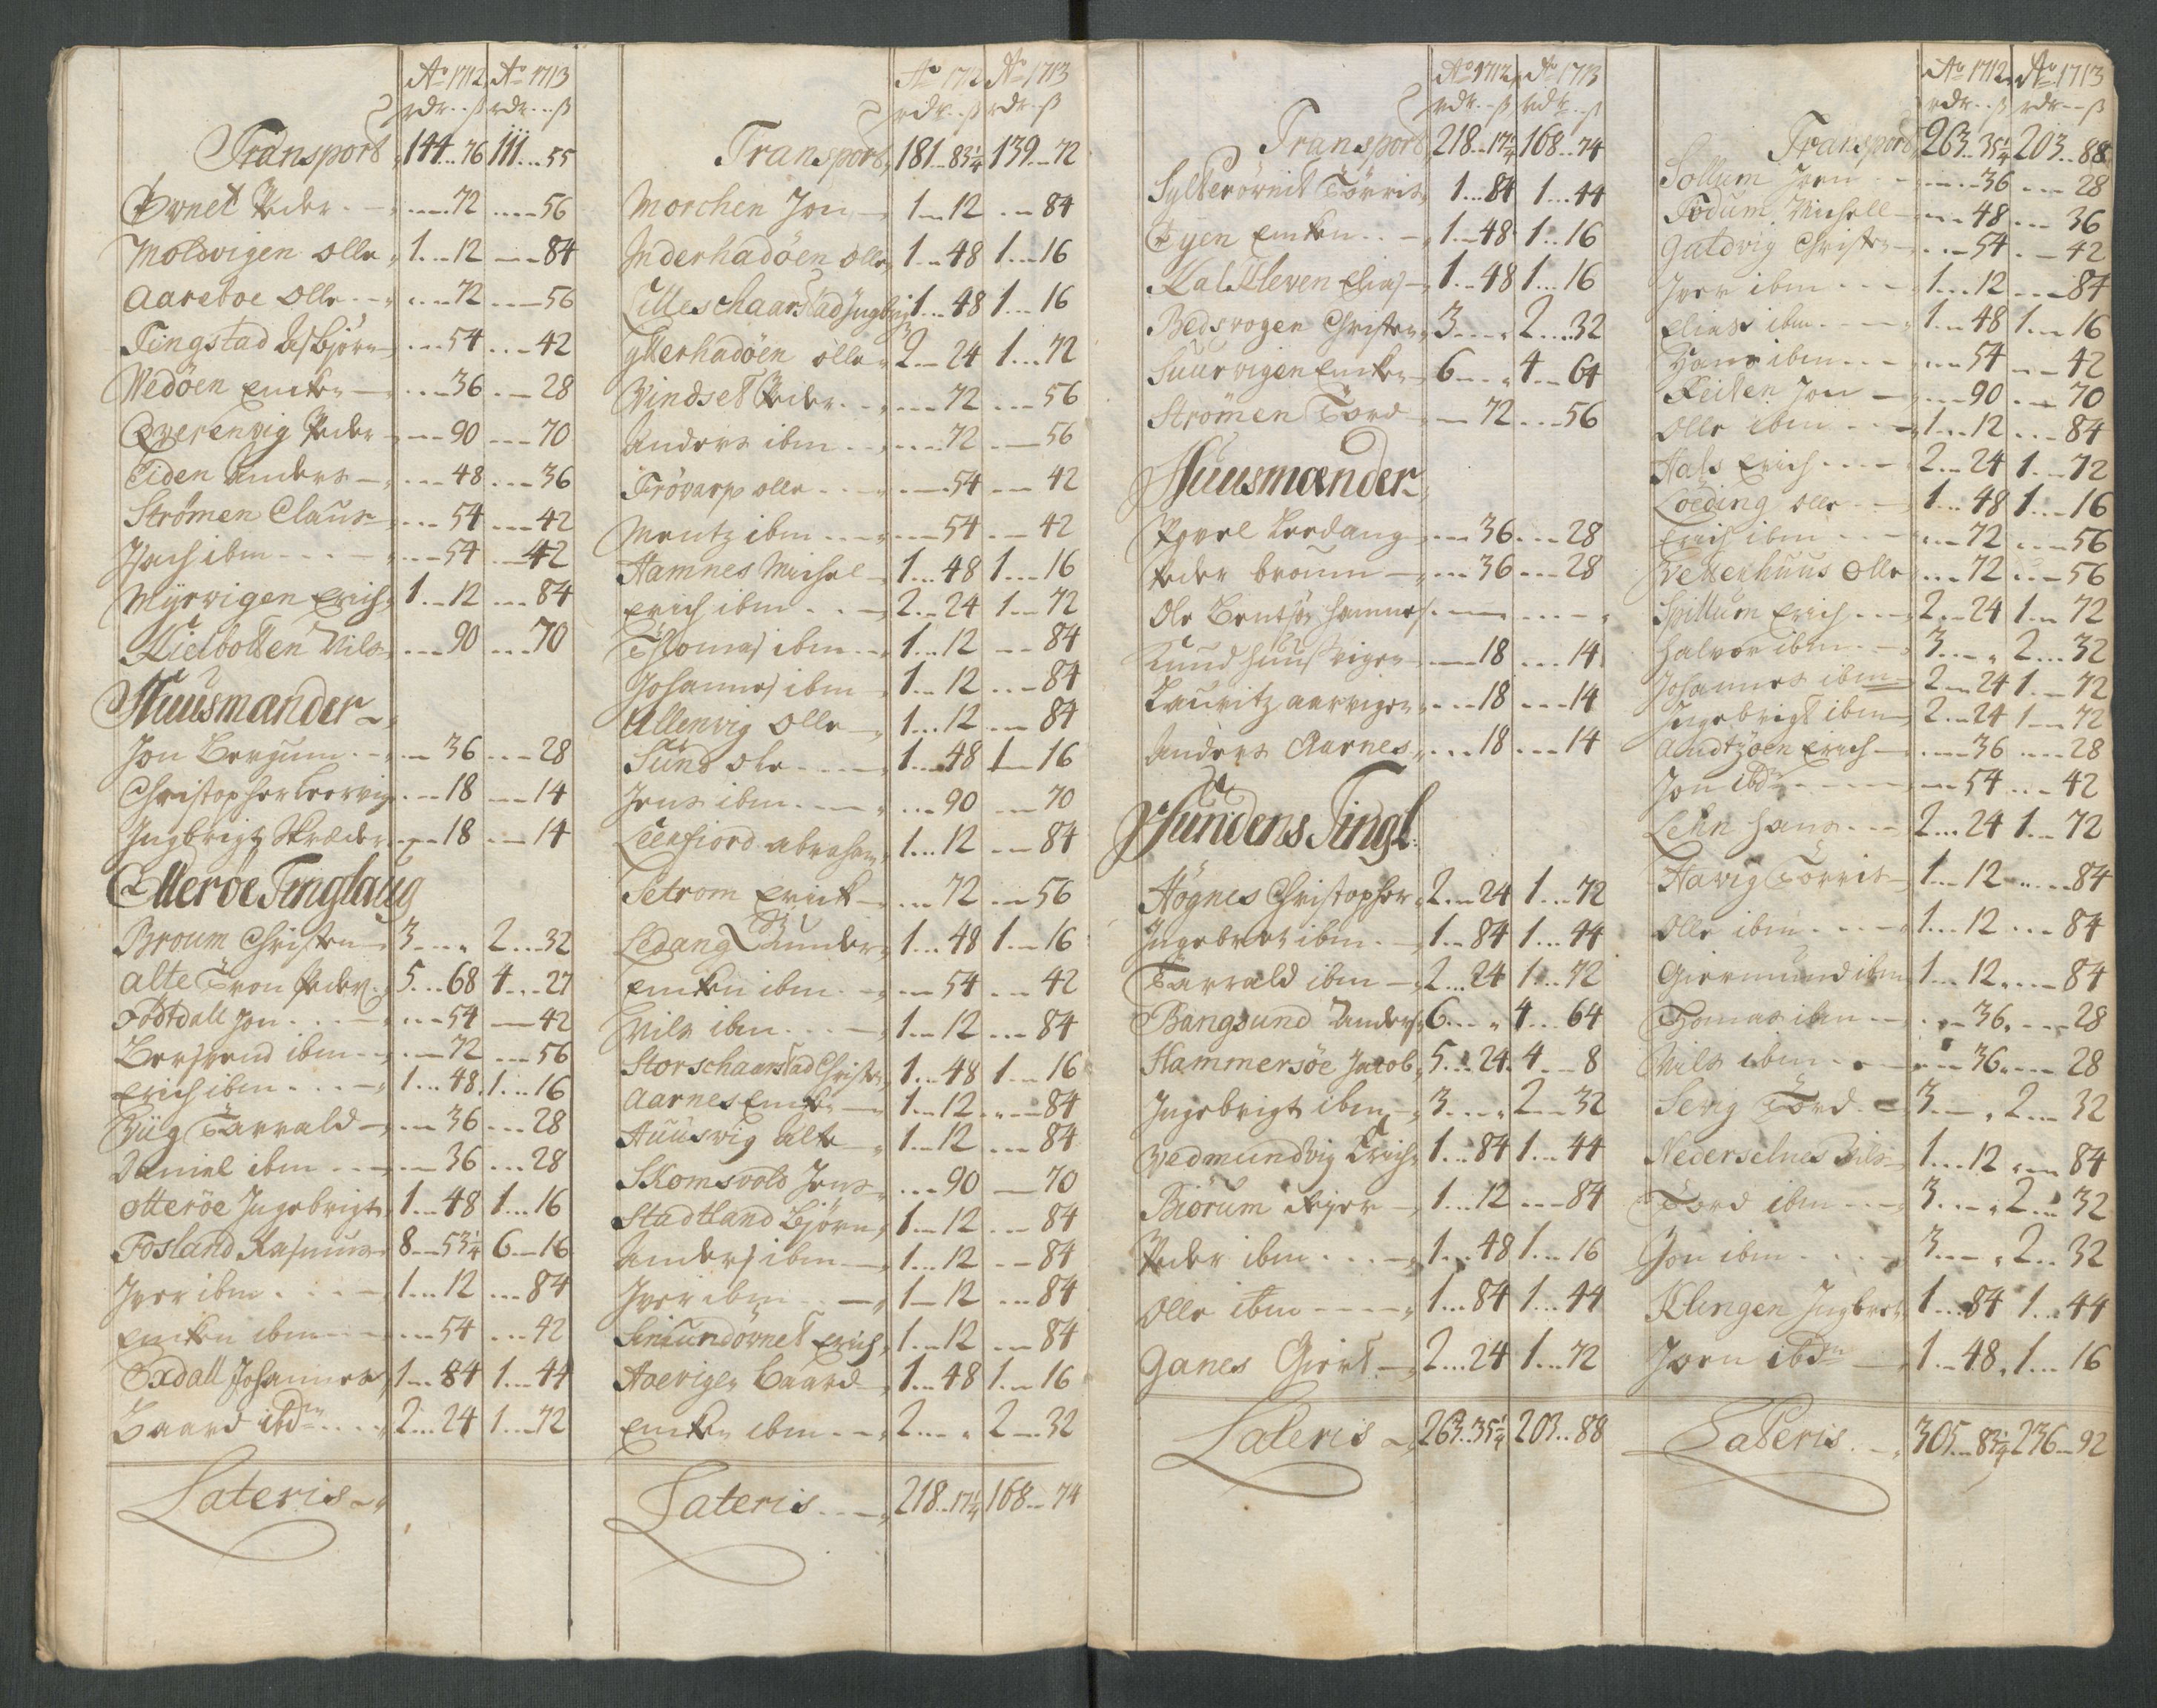 Ao 1712 Ao 1713
rdr...ß rdr...ß
Transport 144..76 111...55
Ørnet Peder 72 56
Moldvigen Olle 1...12 84
Aareboe Olle 72 56
Tingstad Asbjørn 54 42
Wedöen Encken 36 28
Qverenvig Peder 90 70
Eiden Anders 48 36
Strømen Claus 54 42
ibm 54 42
Myrvigen Erich 1...12 84
Kielbotten Nils 90 70
Huusmænder
Jon Bergum 36 28
Christopher Leervig 18 14
Ingbrigt Skræder 18 14
Otterøe Tinglaug
Broum Christen 3 2...32
Alte Tron Peder 5...68 4...27
Födtdall Jon 54 42
ibm 72 56
Erich ibm 1...48 1...16
Viig Tarrald 36 28
Daniel ibm 36 28
Otterøe Ingebrigt 1...48 1...16
Fosland Rasmus 8...53¼ 6...16
Iver ibm 1...12 84
Encken ibm 54 42
Oxdall Johannes 1...84 1...44
Baard ibdm 2...24 1...72
Lateris
Ao 1712 Ao 1713
rdr...ß rdr...ß
Transport 181..83¼ 139...72
Morchen Jon 1...12 84
Inderhadöen Olle 1...48 1...16
Lilleschaarstad Ingbrigt 1...48 1...16
Ytterhadöen Olle 2...24 1...72
Vindset Peder 72 56
Anders ibm 72 56
Frövarp Olle 54 42
Mentz ibm 54 42
Hamnes Michel 1...48 1...16
Erich ibm 2...24 1...72
Thomas ibm 1...12 84
Johannes ibm 1...12 84
Allenvig Olle 1...12 84
Sund Ole 1...48 1...16
Jens ibm 90 70
Leerfiord Abraham 1...12 84
Setrom Erick 72 56
Ledang Gunder 1...48 1...16
Encken ibm 54 42
Nils ibm 1...12 84
Storschaarstad Christen 1...48 1...16
Aarnes Encken 1...12 84
Huusvig Alte 1...12 84
Skomsvold Jens 90 70
Stadtland Bjørn 1...12 84
Anders ibm 1...12 84
Iver ibm 1...12 84
Simundörnet Erich 1...12 84
Hoevigen Baard 1...48 1...16
Encken ibm 2 2...32
Lateris 218..17¼ 168...74
Ao 1712 Ao 1713
rdr...ß rdr...ß
Transport 218..17¼ 168..74
Sylterörnit Törris 1...84 1...44
Øyen Encken 1...48 1...16
Kalkleven Elias 1...48 1...16
Bedsvogen Christen 3 2...32
Suurvigen Encken 6 4...64
Strömen Tord 72 56
Huusmænder
Povel Leedang 36 28
Peder Broum 36 28
Ole Bentsøn Hamnes
Knud Huusvigen 18 14
Lauritz Aarvigen 18 14
Anders Aarnes 18 14
Hundens Tingl:
Högnes Christopher 2...24 1...72
Ingebret ibm 1...84 1...44
Tarrald ibm 2...24 1...72
Bangsund Anders 6 4...64
Hammersöe Jacob 5...24 4...8
Ingebrigt ibm 3 2...32
Vedmundvig Erich 1...84 1...44
Biörum Eyer 1...12 84
Peder ibm 1...48 1...16
Olle ibm 1...84 1...44
Ganes Giert 2...24 1...72
Lateris 263..35¼ 203..88
Ao 1712 Ao 1713
rdr...ß rdr...ß
Transport 263..35¼ 203..88
Sollum Jørn 36 28
Fodum Michell 48 36
Gutdvig Christen 54 42
Iver ibm 1...12 84
Elias ibm 1...48 1...16
Hans ibm 54 42
Reiten Jon 90 70
Olle ibm 1...12 84
Hals Erich 2...24 1...72
Löeding Olle 1...48 1...16
Erich ibm 72 56
Vetterhuus Olle 72 56
Spillum Erich 2...24 1...72
Halvor ibm 3 2...32
Johannes ibm 2...24 1...72
Ingebrigt ibm 2...24 1...72
Amdtzöen Erich 36 28
Jon ibdm 54 42
Lehn Hans 2...24 1...72
Havig Törris 1...12 84
Olle ibm 1...12 84
Giermund ibm 1...12 84
Thomas ibm 36 28
Nils ibm 36 28
Sevig Tord 3 2...32
Nederselnes Nils 1...12 84
Tord ibm 3 2...32
Jon ibm 3 2..32
Klingen Ingbret 1...84 1...44
Jørn ibdm 1...48 1...16
Lateris 305...83¼ 236..92